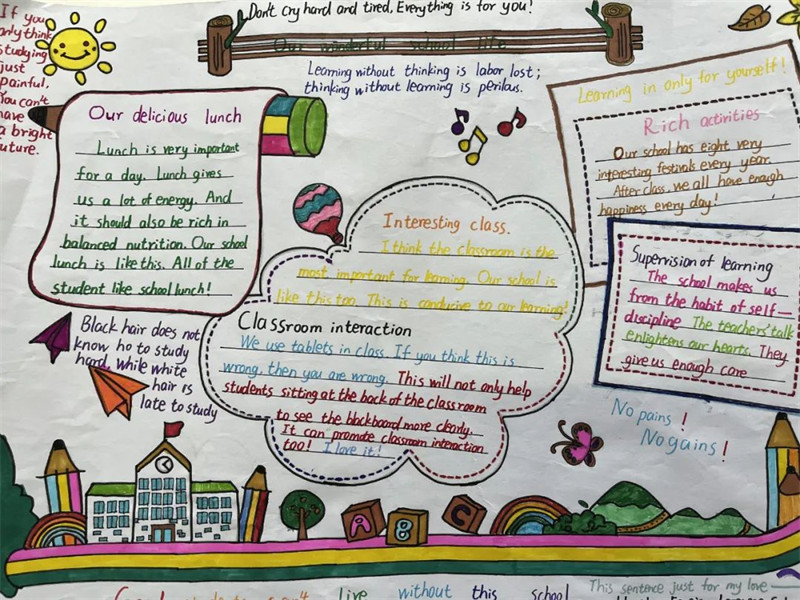 Don't cry hard and tired. Everything is for you!
If you
only think
studying
just
painful,
You can't
have
a bright
future.
Our wonderful school life
Learning without thinking is labor lost;
thinking without learning is perilous.
Our delicious lunch
Lunch is very important
for a day. Lunch gives
us a lot of energy. And
it should also be rich in
balanced nutrition. Our school
lunch is like this. All of the
student like school lunch!
Learning in only for yourself!
Rich activities
Our school has eight very
interesting festivals every year.
After class, we all have enough
happiness every day!
Interesting class.
I think the classroom is the
most important for learning. Our school is
like this too. This is conducive to our learning!
Classroom interaction
We use tablets in class. If you think this is
wrong, then you are wrong. This will not only help
students sitting at the back of the classroom
to see the blackboard more clearly.
It can promote classroom interaction
too! I love it!
Supervision of learning
The school makes us
from the habit of self—
discipline The teachers' talk
enlightens our hearts. They
give us enough care
Black hair does not
know ho to study
hard, while white
hair is
late to study
No pains!
No gains!
A B C
live without this school
This sentence just for my love —